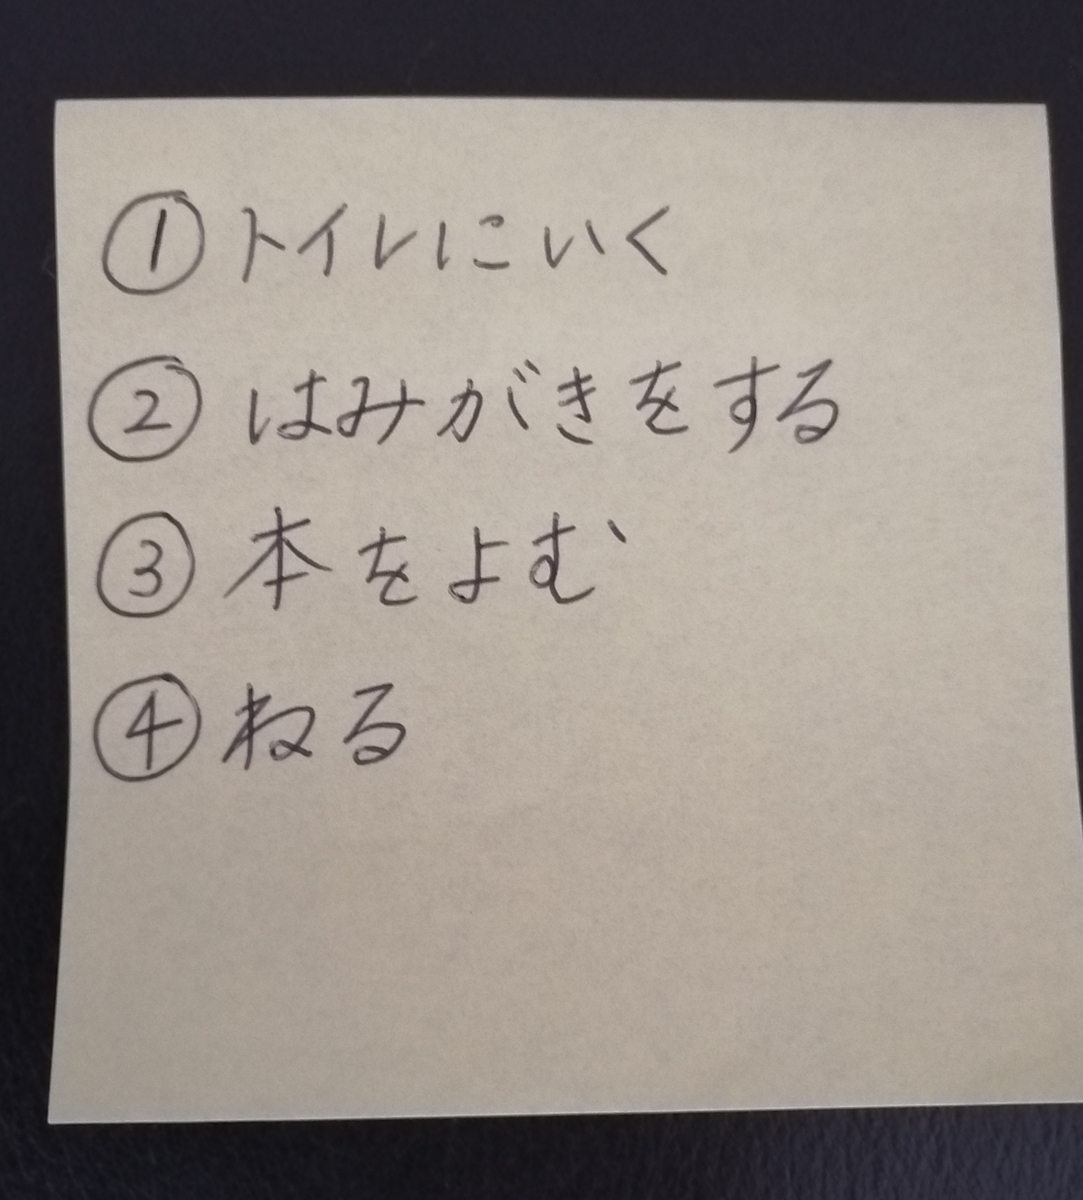 ① トイレにいく
② はみがきをする
③ 本をよむ
④ ねる